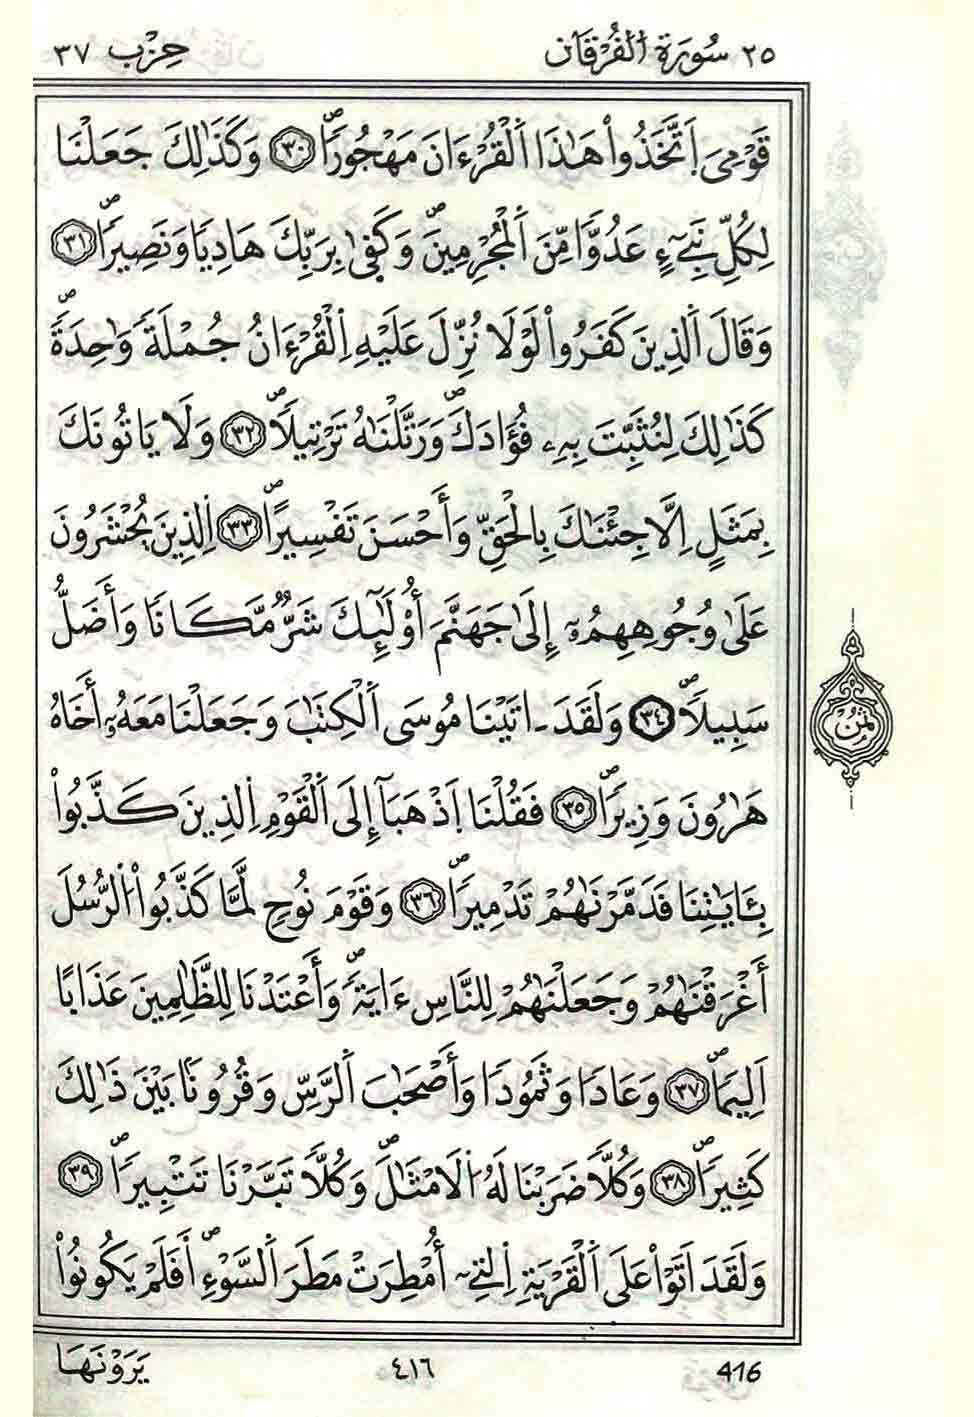 ٢٥ سُورَةُ الْفُرْقَانِ حِزْب ٣٧
قَوْمِيَ اَ۪تَّخَذُواْ هَٰذَا اَ۬لْقُرْءَانَ مَهْجُوراٗۖ ٣٠ وَكَذَٰلِكَ جَعَلْنَا
لِكُلِّ نَبِےٓءٍ عَدُوّاٗ مِّنَ اَ۬لْمُجْرِمِينَۖ وَكَف۪ىٰ بِرَبِّكَ هَادِياٗ وَنَصِيراٗۖ ٣١
وَقَالَ اَ۬لذِينَ كَفَرُواْ لَوْلَا نُزِّلَ عَلَيْهِ اِ۬لْقُرْءَانُ جُمْلَةٗ وَٰحِدَةٗۖ
كَذَٰلِكَ لِنُثَبِّتَ بِهِۦ فُؤَادَكَۖ وَرَتَّلْنَٰهُ تَرْتِيلاٗۖ ٣٢ وَلَا يَاتُونَكَ
بِمَثَلٍ اِلَّا جِئْنَٰكَ بِالْحَقِّ وَأَحْسَنَ تَفْسِيراٗۖ ٣٣ اِ۬لذِينَ يُحْشَرُونَ
عَلَىٰ وُجُوهِهِمُۥٓ إِلَىٰ جَهَنَّمَ أُوْلَٰٓئِكَ شَرّٞ مَّكَاناٗ وَأَضَلُّ
سَبِيلاٗۖ ٣٤ وَلَقَدَ اٰتَيْنَا مُوسَى اَ۬لْكِتَٰبَ وَجَعَلْنَا مَعَهُۥٓ أَخَاهُ
هَٰرُونَ وَزِيراٗۖ ٣٥ فَقُلْنَا اَ۪ذْهَبَآ إِلَى اَ۬لْقَوْمِ اِ۬لذِينَ كَذَّبُواْ
بِـَٔايَٰتِنَا فَدَمَّرْنَٰهُمْ تَدْمِيراٗۖ ٣٦ وَقَوْمَ نُوحٖ لَّمَّا كَذَّبُواْ اُ۬لرُّسُلَ
أَغْرَقْنَٰهُمْ وَجَعَلْنَٰهُمْ لِلنَّاسِ ءَايَةٗۖ وَأَعْتَدْنَا لِلظَّٰلِمِينَ عَذَاباً
اَلِيماٗۖ ٣٧ وَعَاداٗ وَثَمُوداٗ وَأَصْحَٰبَ اَ۬لرَّسِّ وَقُرُوناَۢ بَيْنَ ذَٰلِكَ
كَثِيراٗۖ ٣٨ وَكُلّاٗ ضَرَبْنَا لَهُ اُ۬لَامْثَٰلَۖ وَكُلّاٗ تَبَّرْنَا تَتْبِيراٗۖ ٣٩
وَلَقَدَ اَتَوْاْ عَلَى اَ۬لْقَرْيَةِ اِ۬لتِےٓ أُمْطِرَتْ مَطَرَ اَ۬لسَّوْءِۖ أَفَلَمْ يَكُونُواْ
ثُمُن
يَرَوْنَهَا ٤١٦ 416